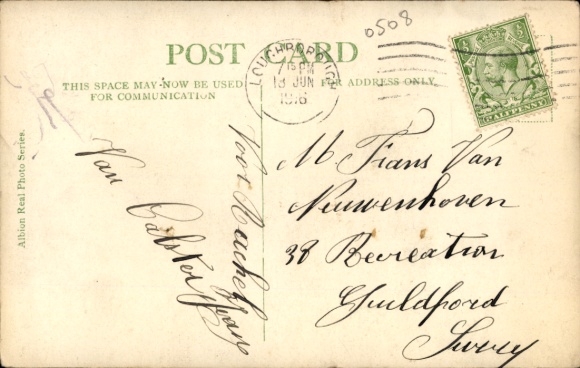 0508
POST CARD
THIS SPACE MAY NOW BE USED
FOR COMMUNICATION
FOR ADDRESS ONLY.
LOUGHBOROUGH
7 15 PM
18 JUN
1916
HALFPENNY
Albion Real Photo Series.
Voor Rachel
Van Calster Jean
Mr Frans Van
Nieuwenhoven
38 Recreation
Guildford
Surrey